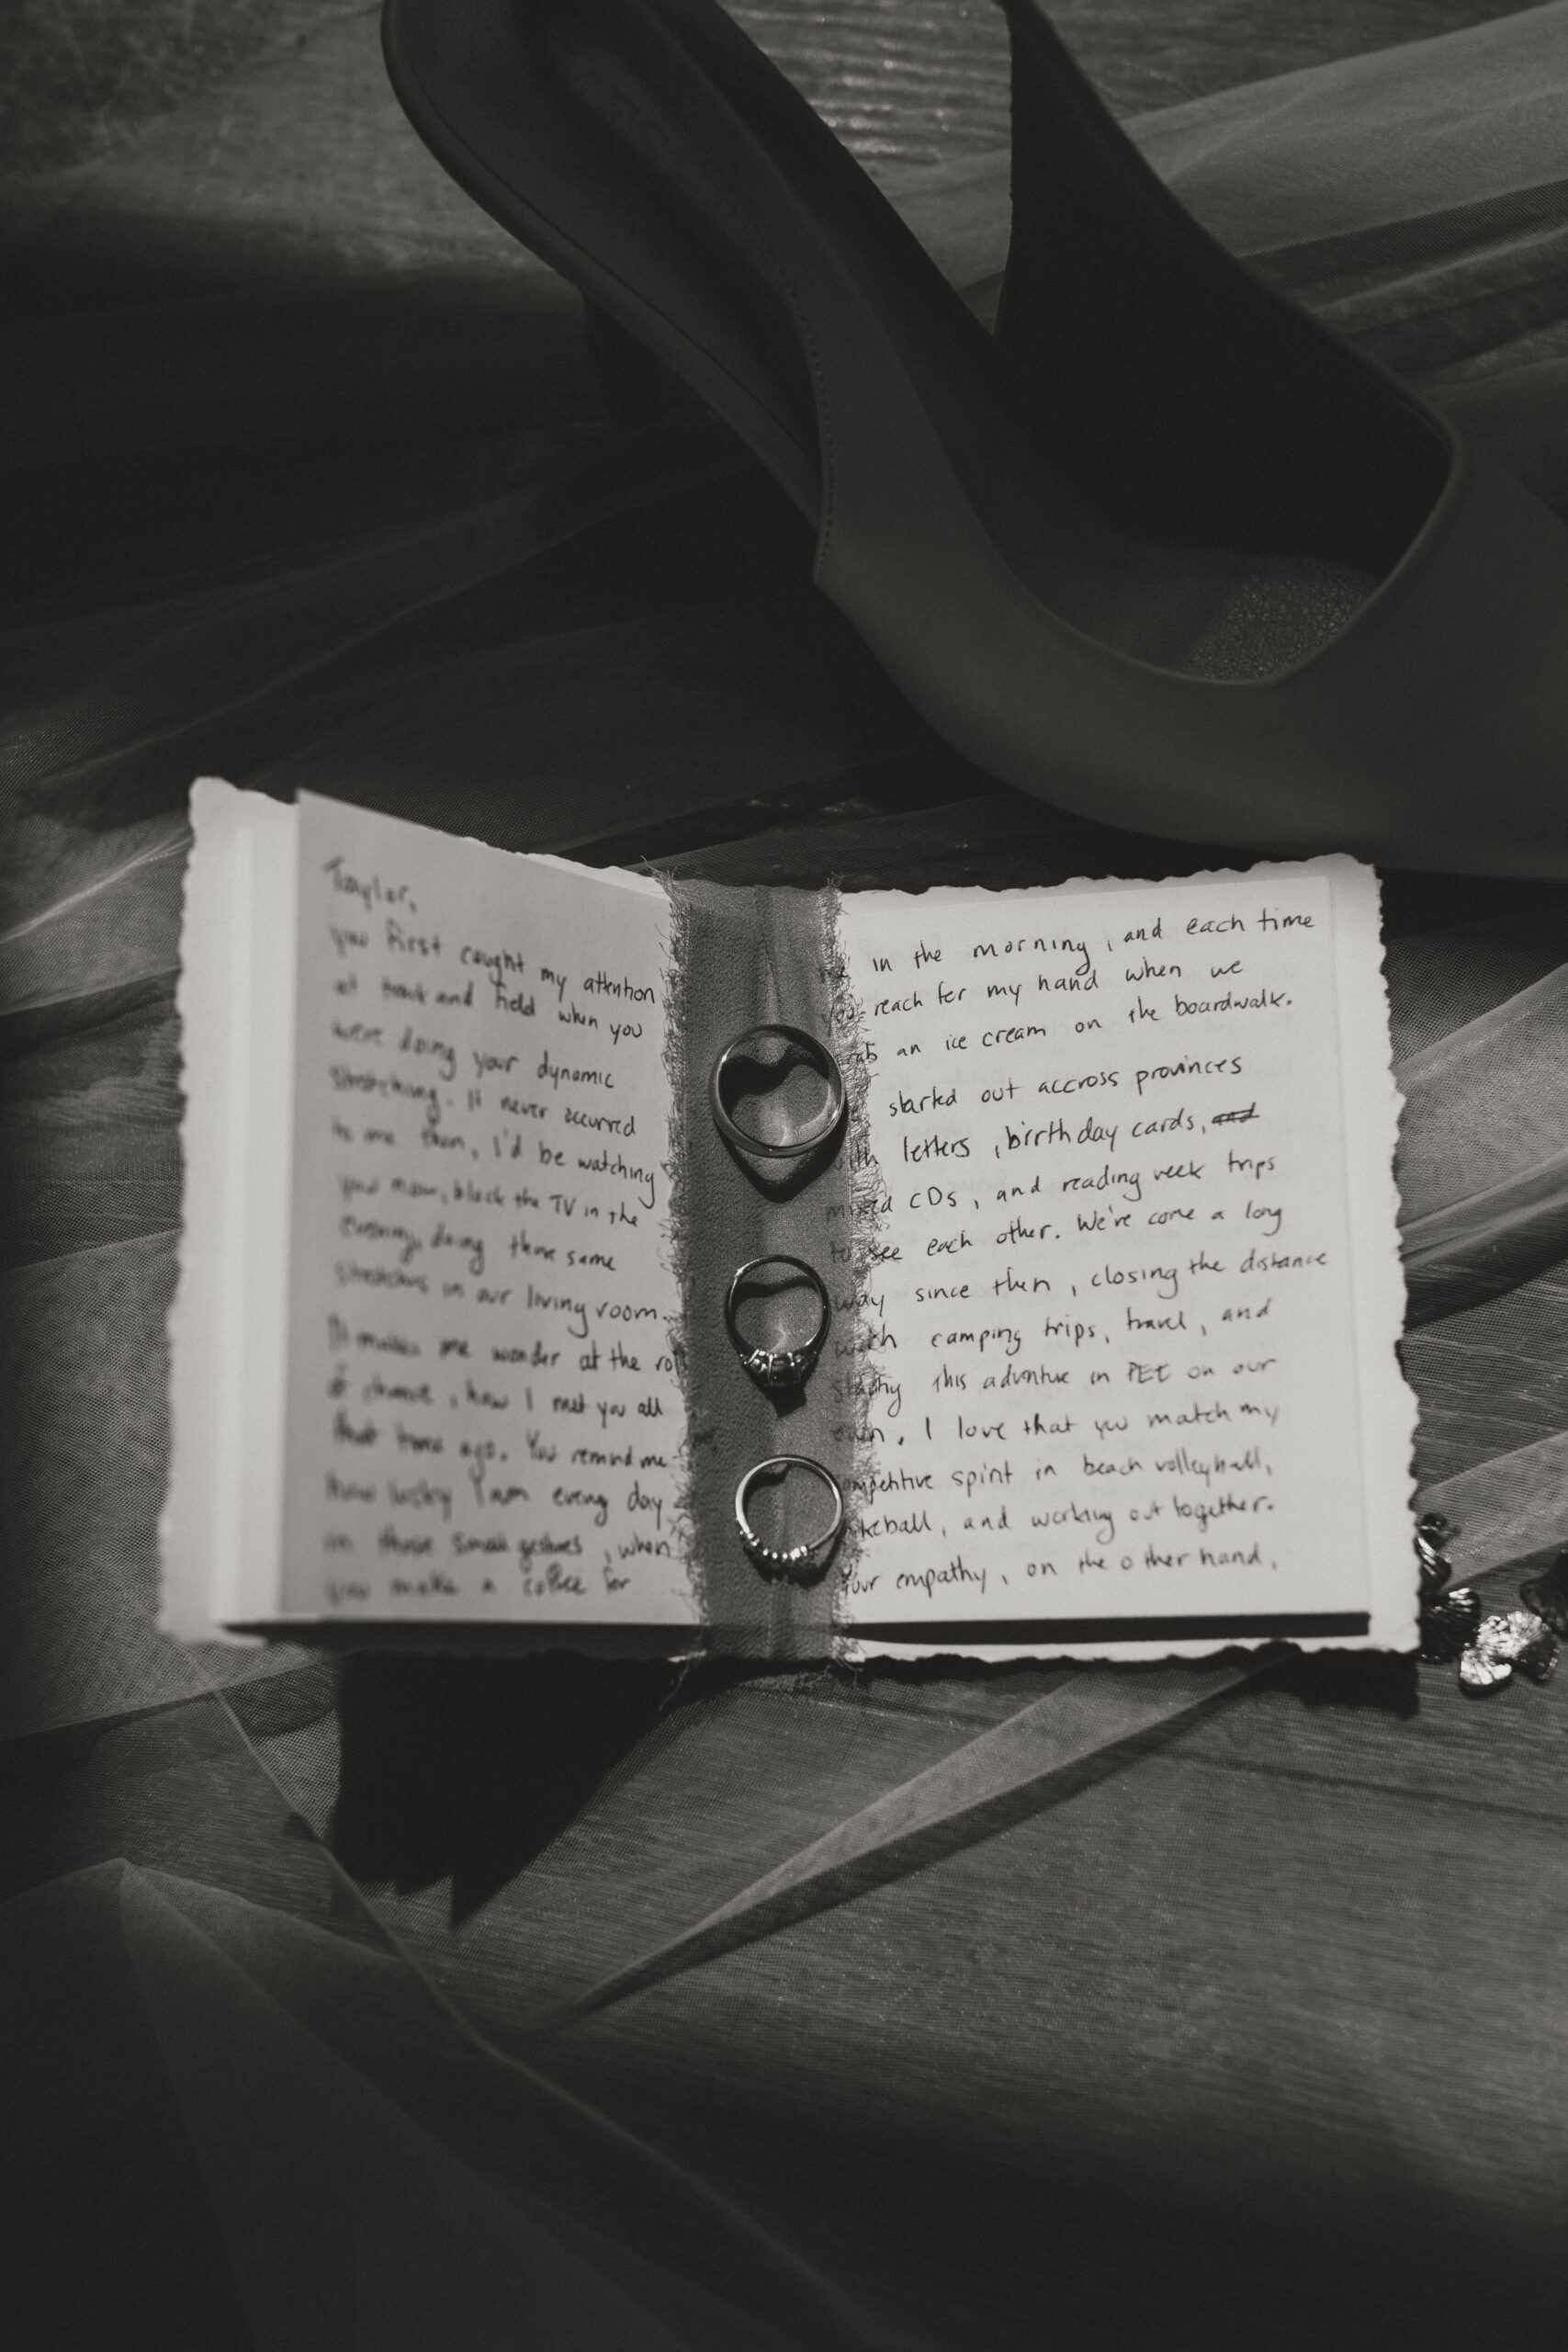 Taylor,
you first caught my attention
at track and field when you
were doing your dynamic
stretching. It never occurred
to me then, I'd be watching
you now, block the TV in the
evening, doing those same
stretches in our living room.
It makes me wonder at the roll
of chance, how I met you all
that time ago. You remind me
how lucky I am every day
in those small gestures, when
you make a coffee for
me in the morning, and each time
you reach for my hand when we
grab an ice cream on the boardwalk.
started out accross provinces
with letters, birrthday cards, and
mixed CDs, and reading week trips
to see each other. We're come a long
way since then, closing the distance
with camping trips, travel, and
this adventure in PEI on our
own. I love that you match my
ompetitive spirit in beach volleyball,
and working out together.
Your empathy, on the other hand,